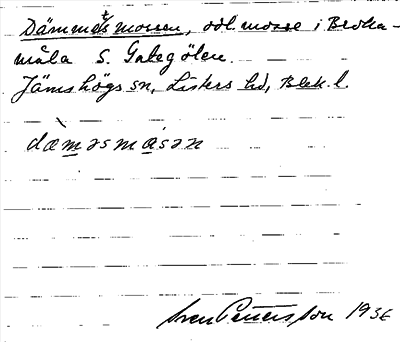 Dämmetsmossen, odl. mosse i Broka-
måla S. Gategölen.
Jämshögs sn, Listers hd, Blek. l.
dæ̀məsmåsən
Sven Pettersson 1936